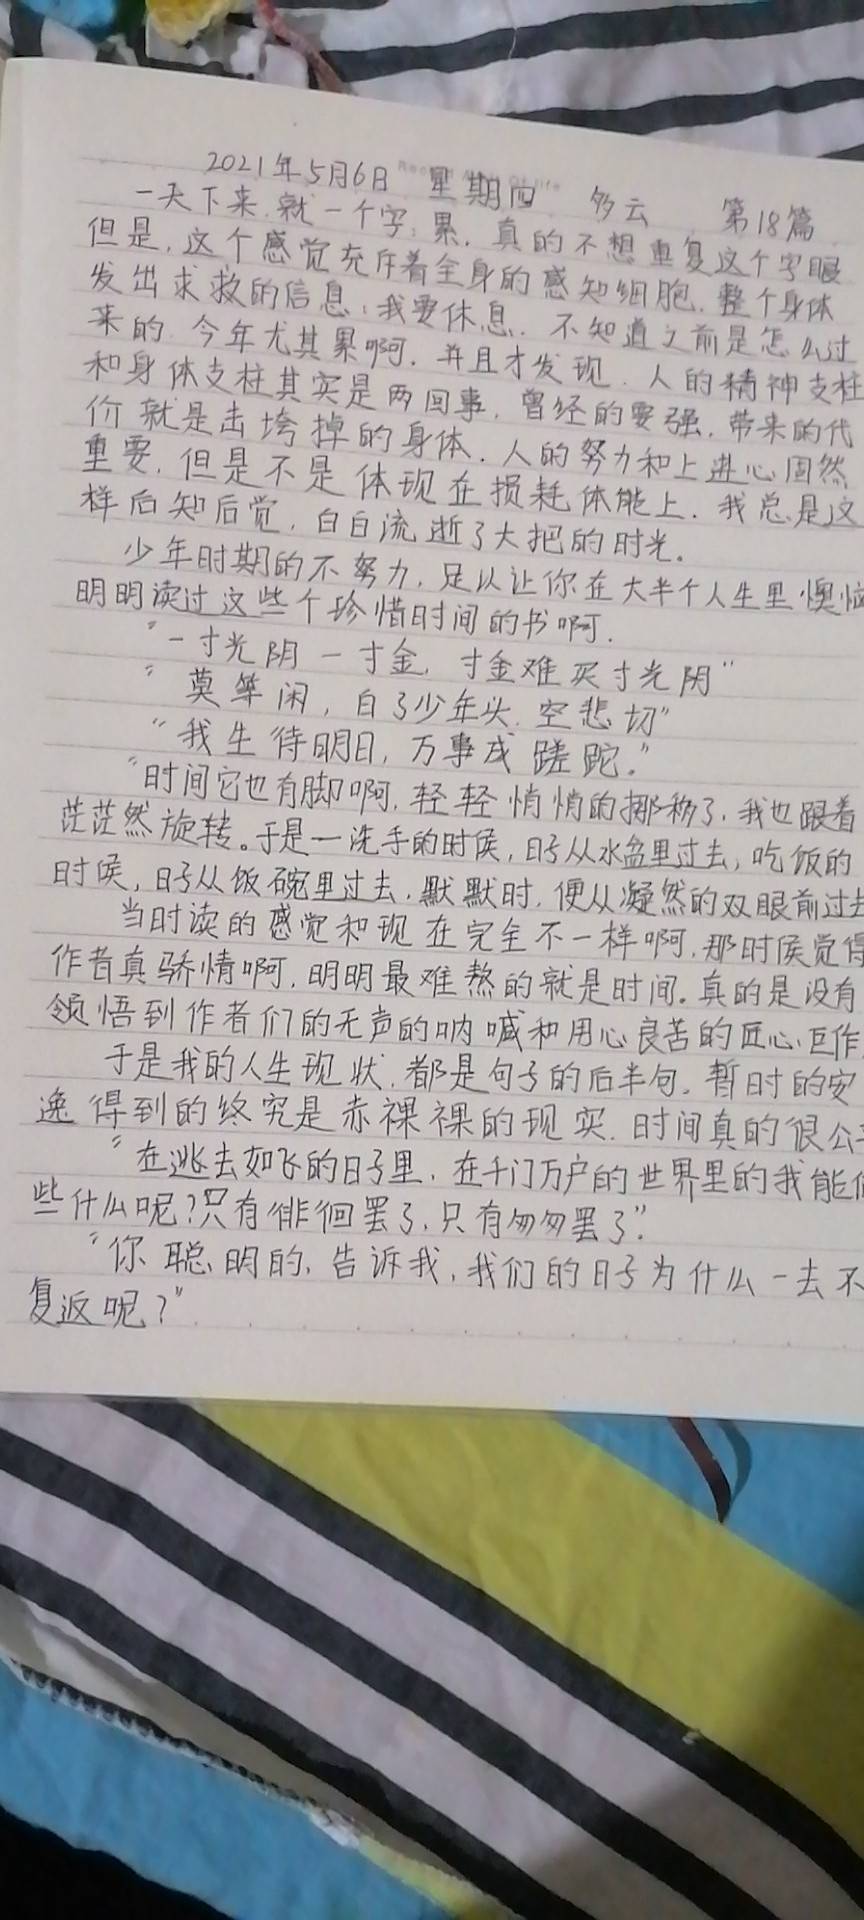 2021年5月6日 星期四 多云 第18篇
一天下来,就一个字:累,真的不想重复这个字眼
但是,这个感觉充斥着全身的感知细胞,整个身体
发出求救的信息:我要休息.不知道之前是怎么过
来的.今年尤其累啊.并且才发现.人的精神支柱
和身体支柱其实是两回事,曾经的要强,带来的代
价就是击垮掉的身体.人的努力和上进心固然
重要,但是不是体现在损耗体能上.我总是这
样后知后觉,白白流逝了大把的时光。
少年时期的不努力,足以让你在大半个人生里懊恼
明明读过这些个珍惜时间的书啊.
"一寸光阴一寸金,寸金难买寸光阴"
"莫等闲,白了少年头,空悲切"
"我生待明日,万事成蹉跎。"
"时间它也有脚啊,轻轻悄悄的挪移了.我也跟着
茫茫然旋转。于是一洗手的时候,日子从水盆里过去,吃饭的
时候,日子从饭碗里过去,默默时,便从凝然的双眼前过去
当时读的感觉和现在完全不一样啊,那时候觉得
作者真骄情啊,明明最难熬的就是时间。真的是没有
领悟到作者们的无声的呐喊和用心良苦的匠心巨作
于是我的人生现状,都是句子的后半句.暂时的安
逸得到的终究是赤裸裸的现实.时间真的很公
"在逃去如飞的日子里,在千门万户的世界里的我能
些什么呢?只有徘徊罢了,只有匆匆罢了".
"你聪明的,告诉我,我们的日子为什么一去不
复返呢?"